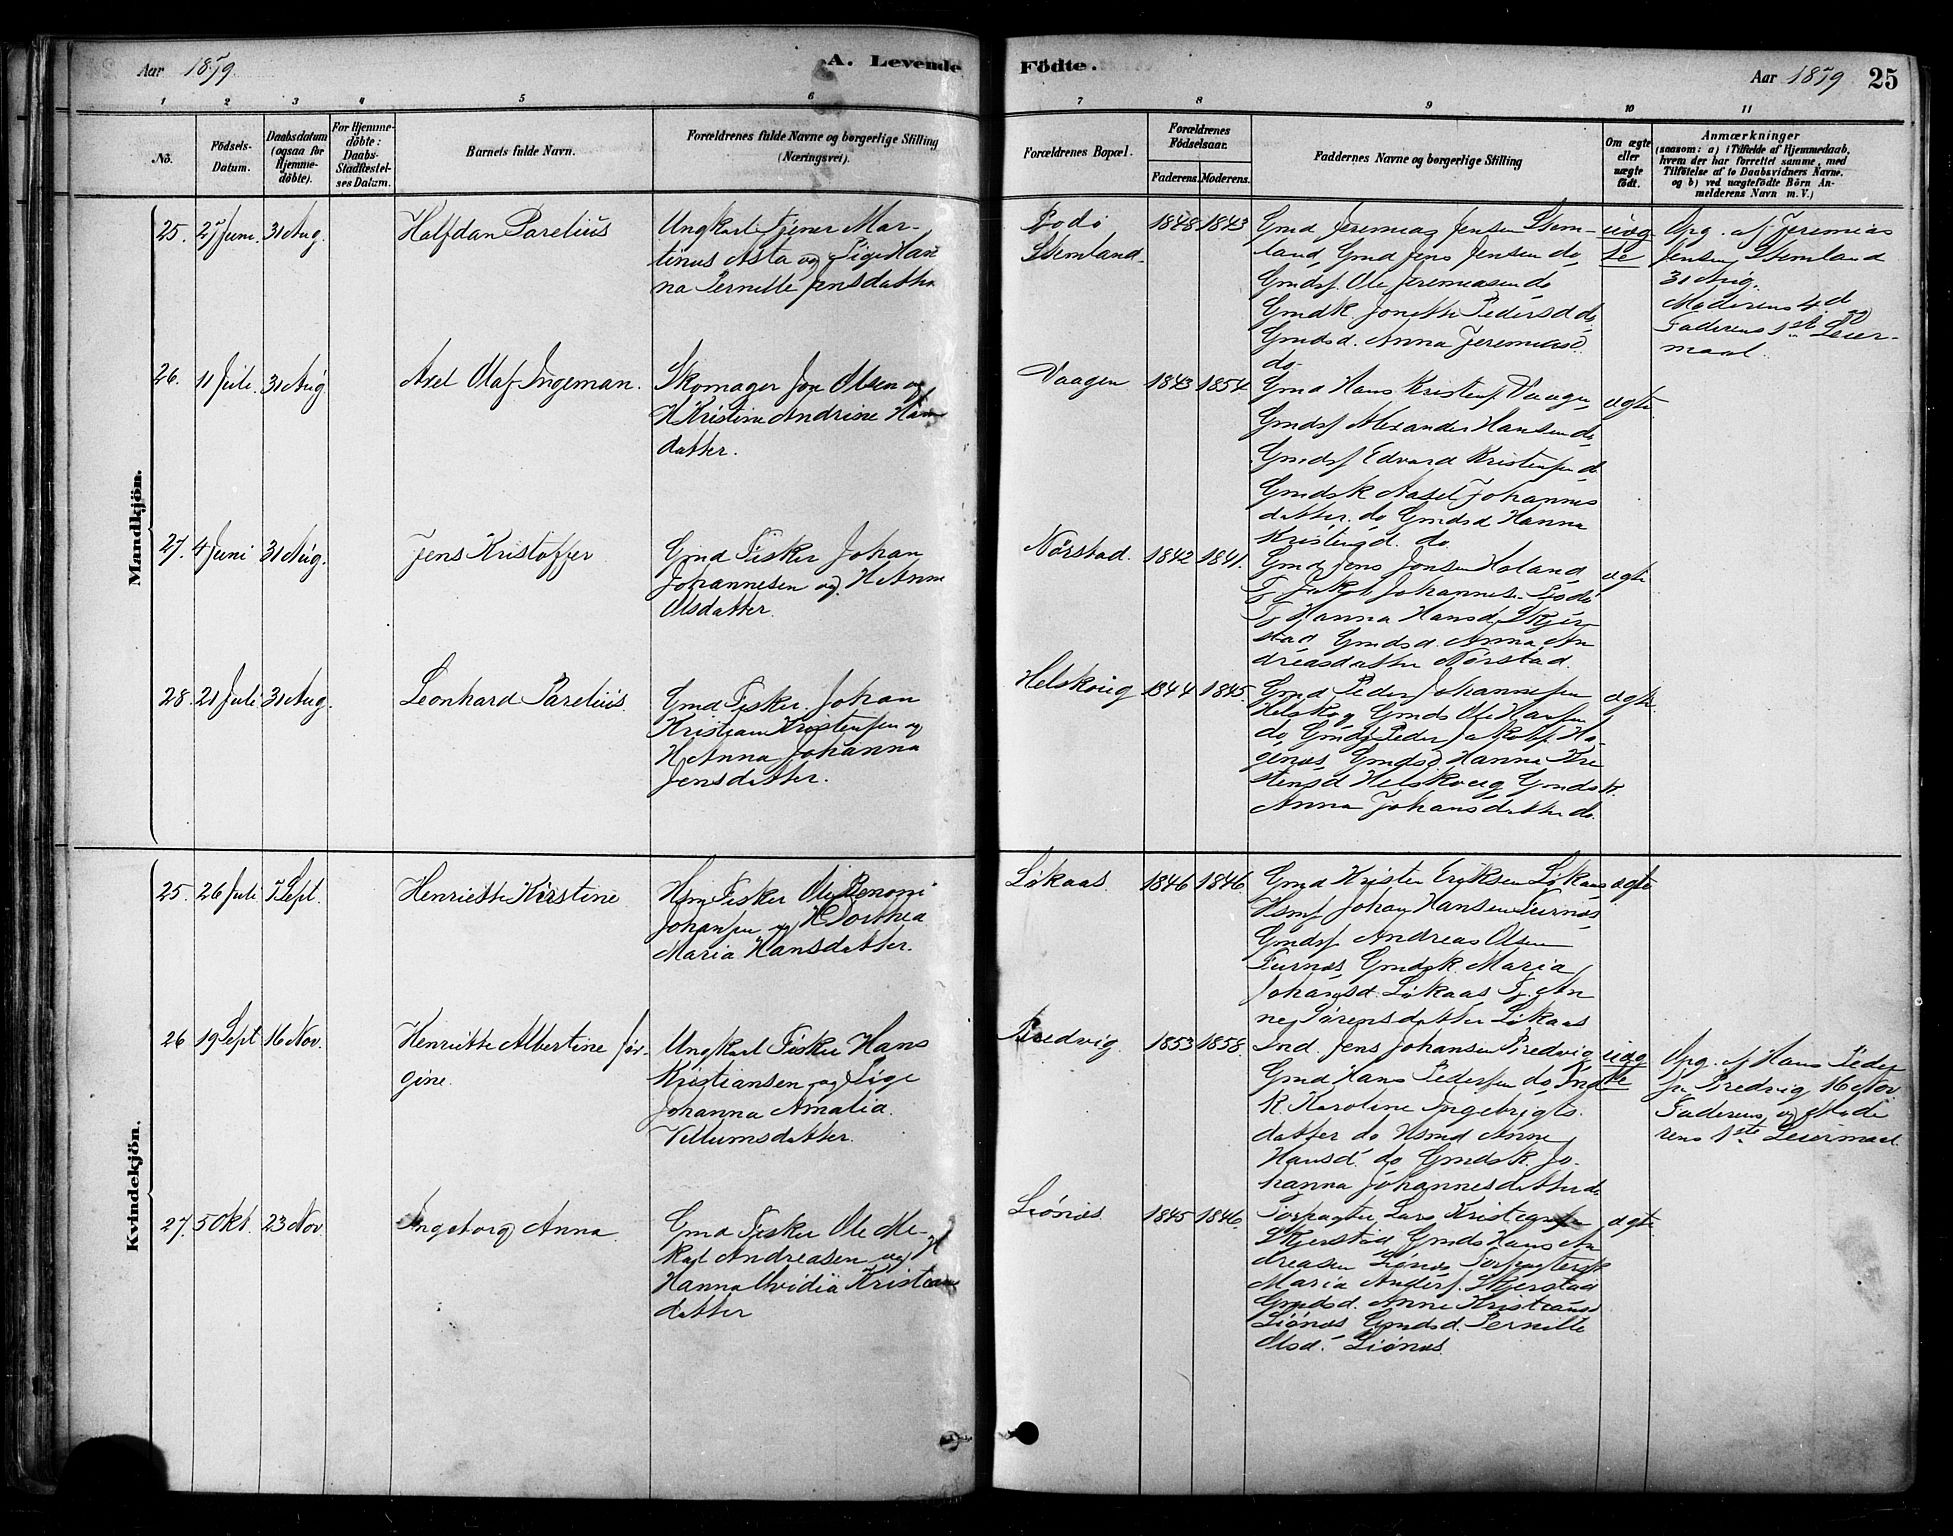 Aar 1879. A. Levende Födte. Aar 1879 25
1 2 3 4 5 6 7 8 9 10 11
No. Födsels-Datum. Daabsdatum (ogsaa for Hjemme-döbte). For Hjemme-döbte: Daabs-Stadfæstel-ses Datum. Barnets fulde Navn. Forældrenes fulde Navne og borgerlige Stilling (Næringsvei). Forældrenes Bopæl. Forældrenes Födselsaar. Faderens. Moderens. Faddernes Navne og borgerlige Stilling Om ægte eller uægte födt. Anmærkninger (saasom: a) i Tilfælde af Hjemmedaab, hvem der har forrettet samme, med Tilföielse af to Daabsvidners Navne, og b) ved uægtefödte Börn An-melderens Navn m. V.)
Mandkjön.
25. 27 Juni. 31 Aug. Halfdan Parelius
Ungkarl Tjener Mar-
tinus Asta og Pige Han
na Pernille Jensdatter
Bodö
Skemland.
1848 1843
Gmd Jeremias Jensen Skem-
land, Gmd Jens Jensen do,
Gmdsf. Ole Jeremiasen do
Gmdk. Pedersd do,
Gmdsd. Anna Jeremiasd
do.
uæg
te
Opg. af Jeremias
Jensen Skemland
31 Aug.
Moderens 4de
Faderens 1ste Leier-
maal.
26. 11 Juli. 31 Aug. Axel Olaf Ingeman.
Skomager Jon Olsen og
H Kristine Andrine Han
datter.
Vaagen 1843 1854.
Gmd Hans Kristensf. Vaagen,
Gmdsf Alexander Hansen do,
Gmdsf Edvard Kristensen d.
Gmdsk Johannes
datter. do Gmdsd Hanna
do.
ægte
27. 4 Juni 31 Aug. Jens Kristoffer
Gmd Fisker Johan
Johannesen og H Anne
Olsdatter.
Nörstad. 1842 1841.
Gmd Jens Jonsen Holand,
Tj. Jakob Johannes. Bodö
Tj Hanna Hansd Skjer
stad Gmdsd. Anna An
dreasdatter Nörstad.
ægte
28. 21 Juli 31 Aug. Leonhard Parelius.
Gmd Fisker. Johan
Kristian Kristensen og
H Anna Johanna
Jensdatter.
Helskoug 1844 1845.
Gmd Peder Johannesen
Helskog Gmds Ole Hansen
do, Gmdsf Peder
Gmdsd. Hanna Kri
stensd Helskoug Gmdsk.
Anna Johansdatter do.
ægte.
Kvindekjön.
25. 26 Juli 7 Sept. Henriette Kirstine
Hsm Fisker Ole Benoni
Johansen og H Dorthea
Maria Hansdatter.
Lökaas. 1846 1846.
Gmd Kristen Eriksen Lökaas,
Hsmf Johan Hansen Furnæs
Gmdsf. Andreas Olsen
Furnæs, Gmdsk. Maria
Johansd. Lökaas Tj. An
ne Sörensdatter Lökaas
ægte
26 19 Sept 16 Nov. Henriette Albertine Jör-
gine.
Ungkarl Fisker Hans
Kristiansen og Pige
Johanna Amalia
Villumsdatter.
Bredvig 1853 1858.
Ind. Jens Johansen Bredvig
Gmd Hans Pedersen do, Ind
k. Karoline Ingebrigts.
datter do Hsmd Anne
Hansd. do Gmdsk. Jo-
hanna Johannesdatter do
uæg
te
Opg. af Hans Peder
sen Bredvig 16 Nov.
Faderens og Mode
rens 1ste Leiermaal.
27. 5 Okt. 23 Nov. Ingeborg Anna.
Gmd Fisker Ole Mi-
kal Andreasen og H
Hanna Ovidia Kristians
datter
Liönes 1845 1846.
Forpagter Lars Kristiansen
Skjerstad Gmds Hans An
dreasen Liönes Forpagtersk
Maria Andersd. Skjerstad
Gmdsd. Anne Kristiansd
Liönes Gmdsd. Pernille
Olsd. Liönes.
ægte.